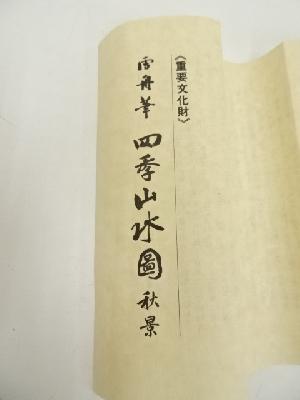 《重要文化財》
雪舟筆 四季山水圖 秋景